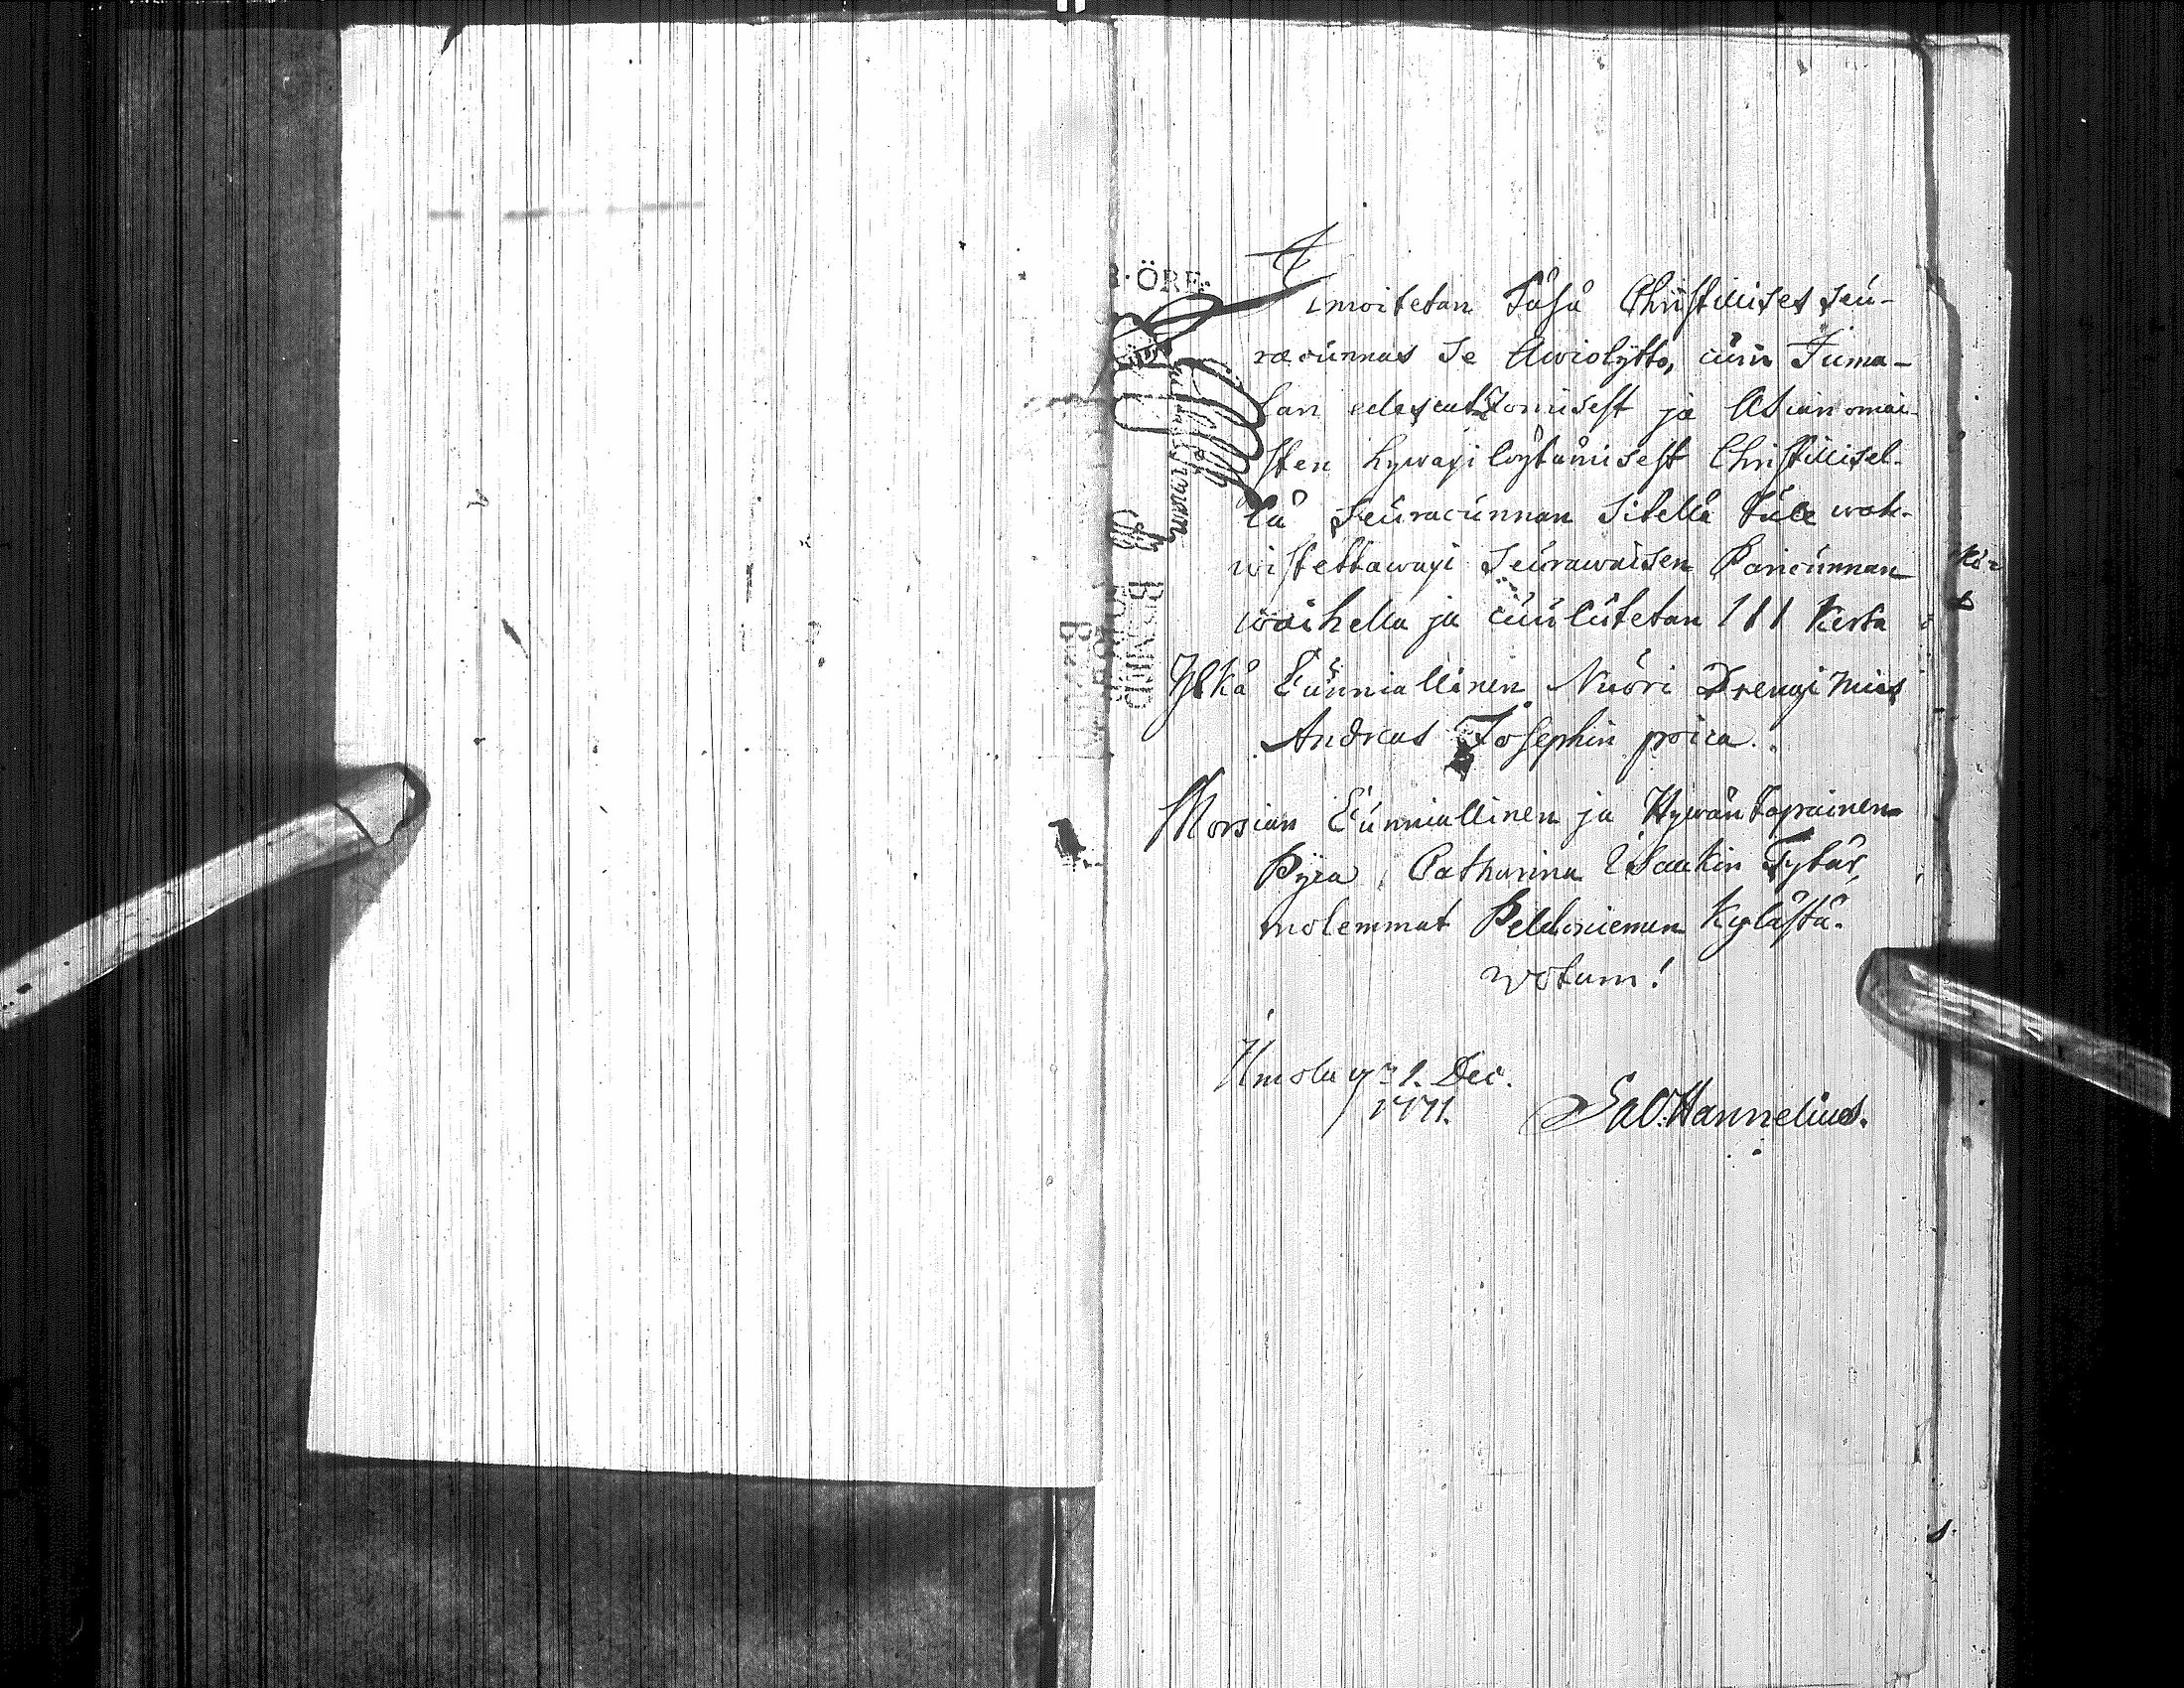 8·ÖRE·
Ilmoitetan Täsä Christillises seu-
racunnas se Awiolijtto, cuin Juma-
lan edescatzomisest ja Asianomai-
sten hywäxi löytämisest Christillisel-
lä Seuracunnan sitellä tule wah-
wistettawaxi seurawaisen Paricunnan
waihella ja cuulutetan 1 kerta
Ylkä Cunniallinen Nuori Drengi mies
Andreas Josephin poica.
Morsian Cunniallinen ja Hywäntapainen
Pyca, Catharina Isaakin Tytär,
molemmat Peldoniemen Kylästä.
votum!
Ilmola 1. Dec.
1771.
Sal. Hannelius.